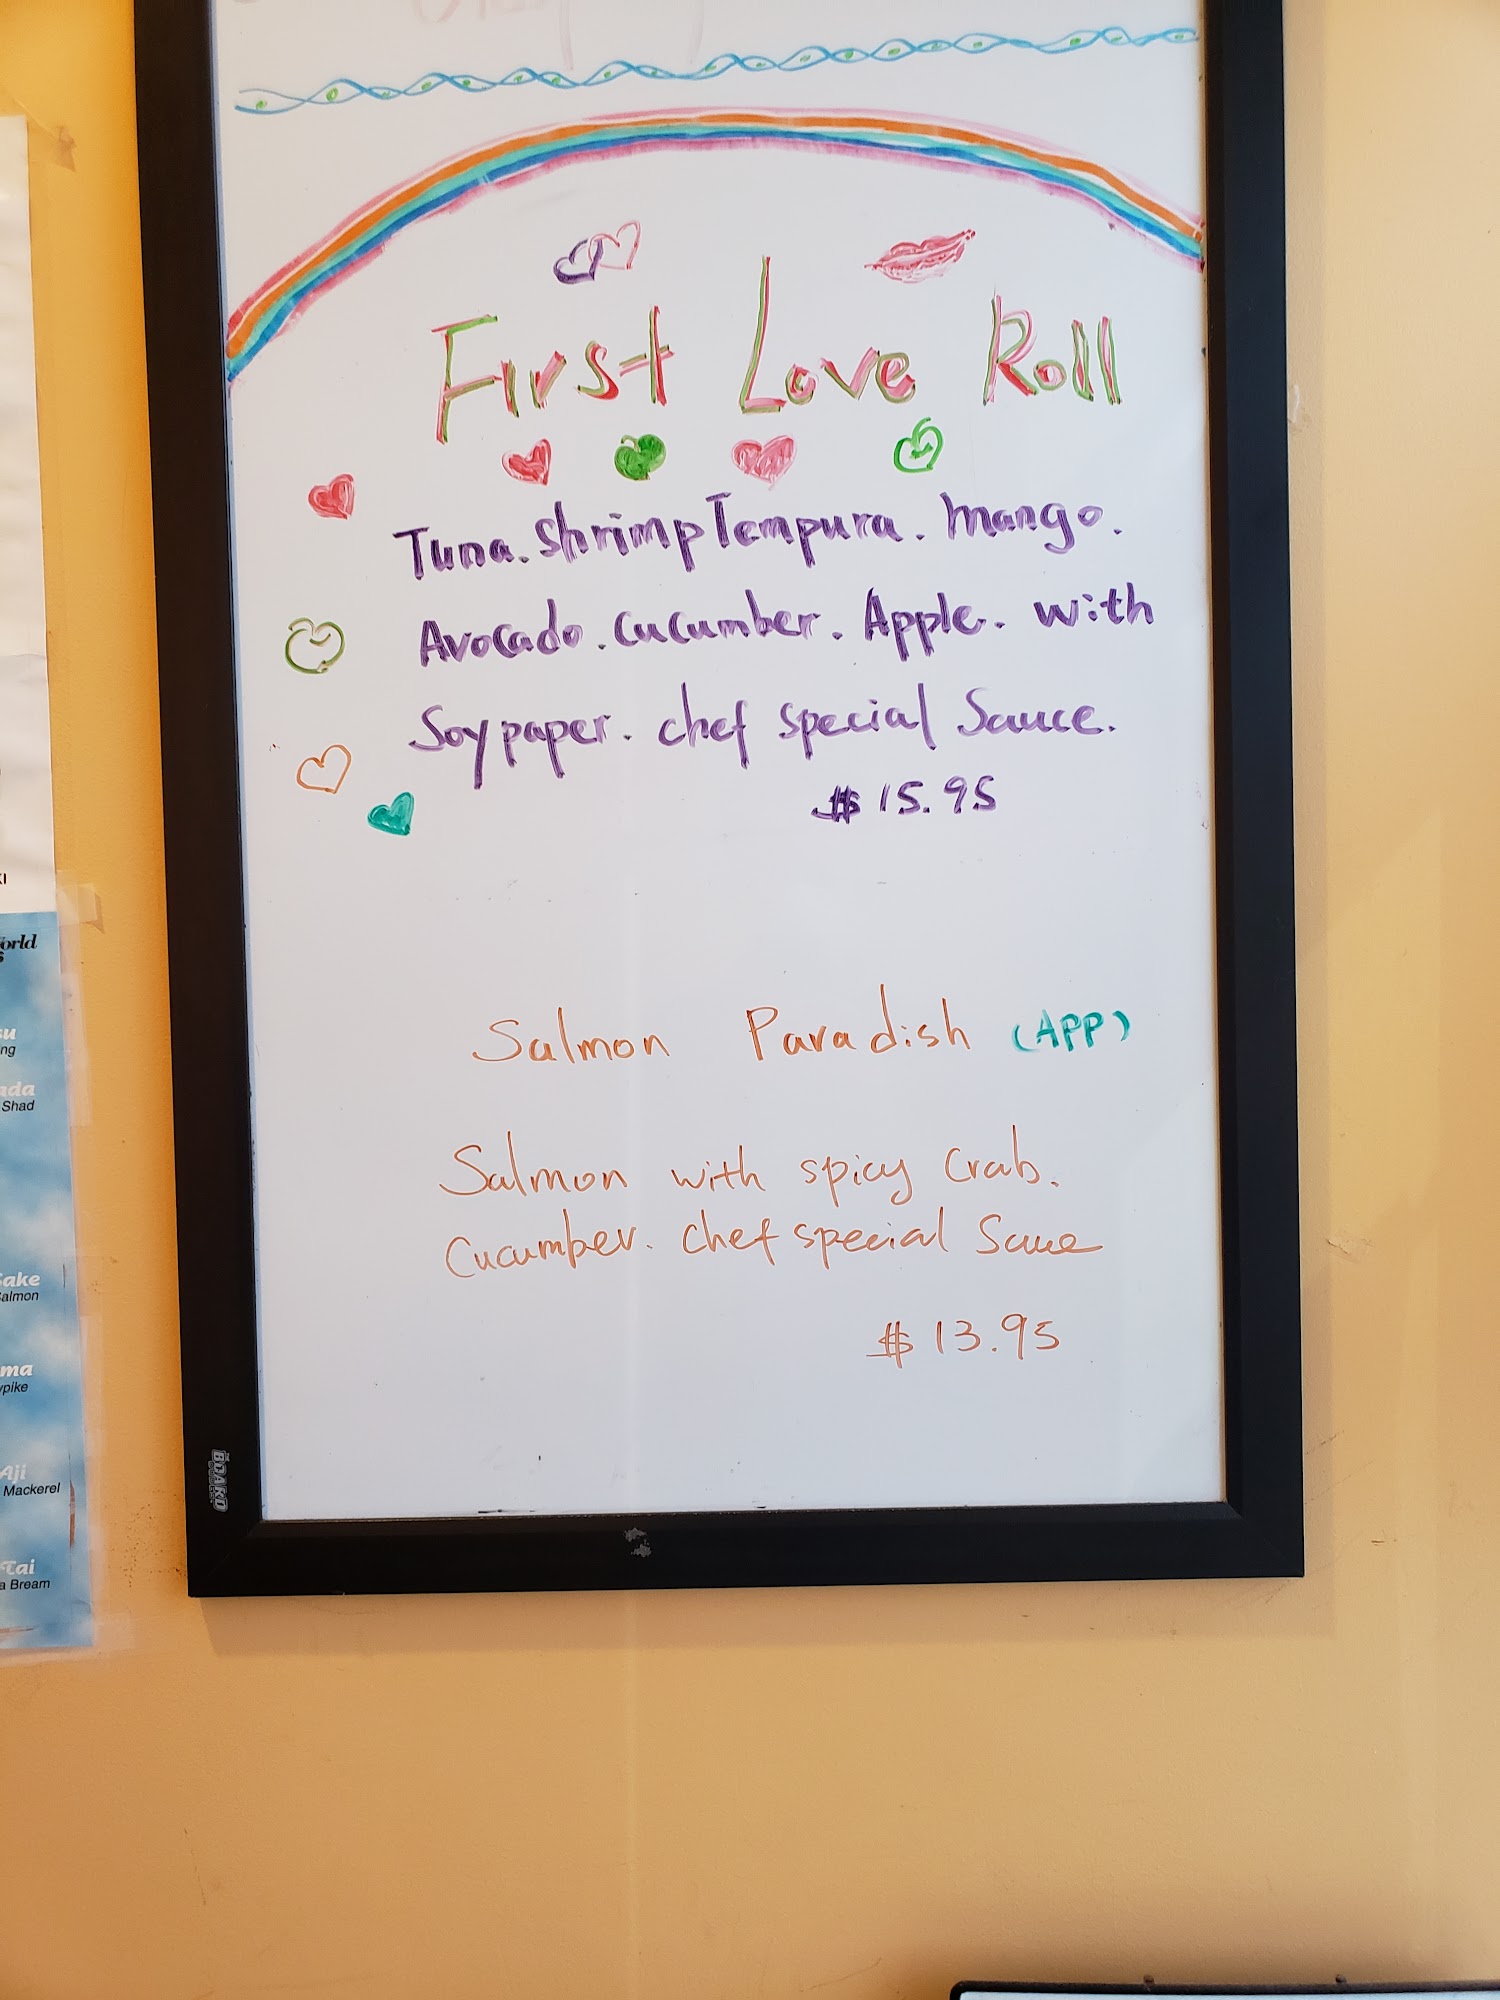 First Love Roll
Tuna. Shrimp Tempura. Mango.
Avocado. Cucumber. Apple. with
Soy paper. chef special Sauce.
$15.95
Salmon Paradish (APP)
Salmon with spicy Crab.
Cucumber. chef special Sauce
$13.95
BOARD
orld
su
ng
ada
Shad
Sake
Salmon
ma
ypike
Aji
Mackerel
Tai
a Bream